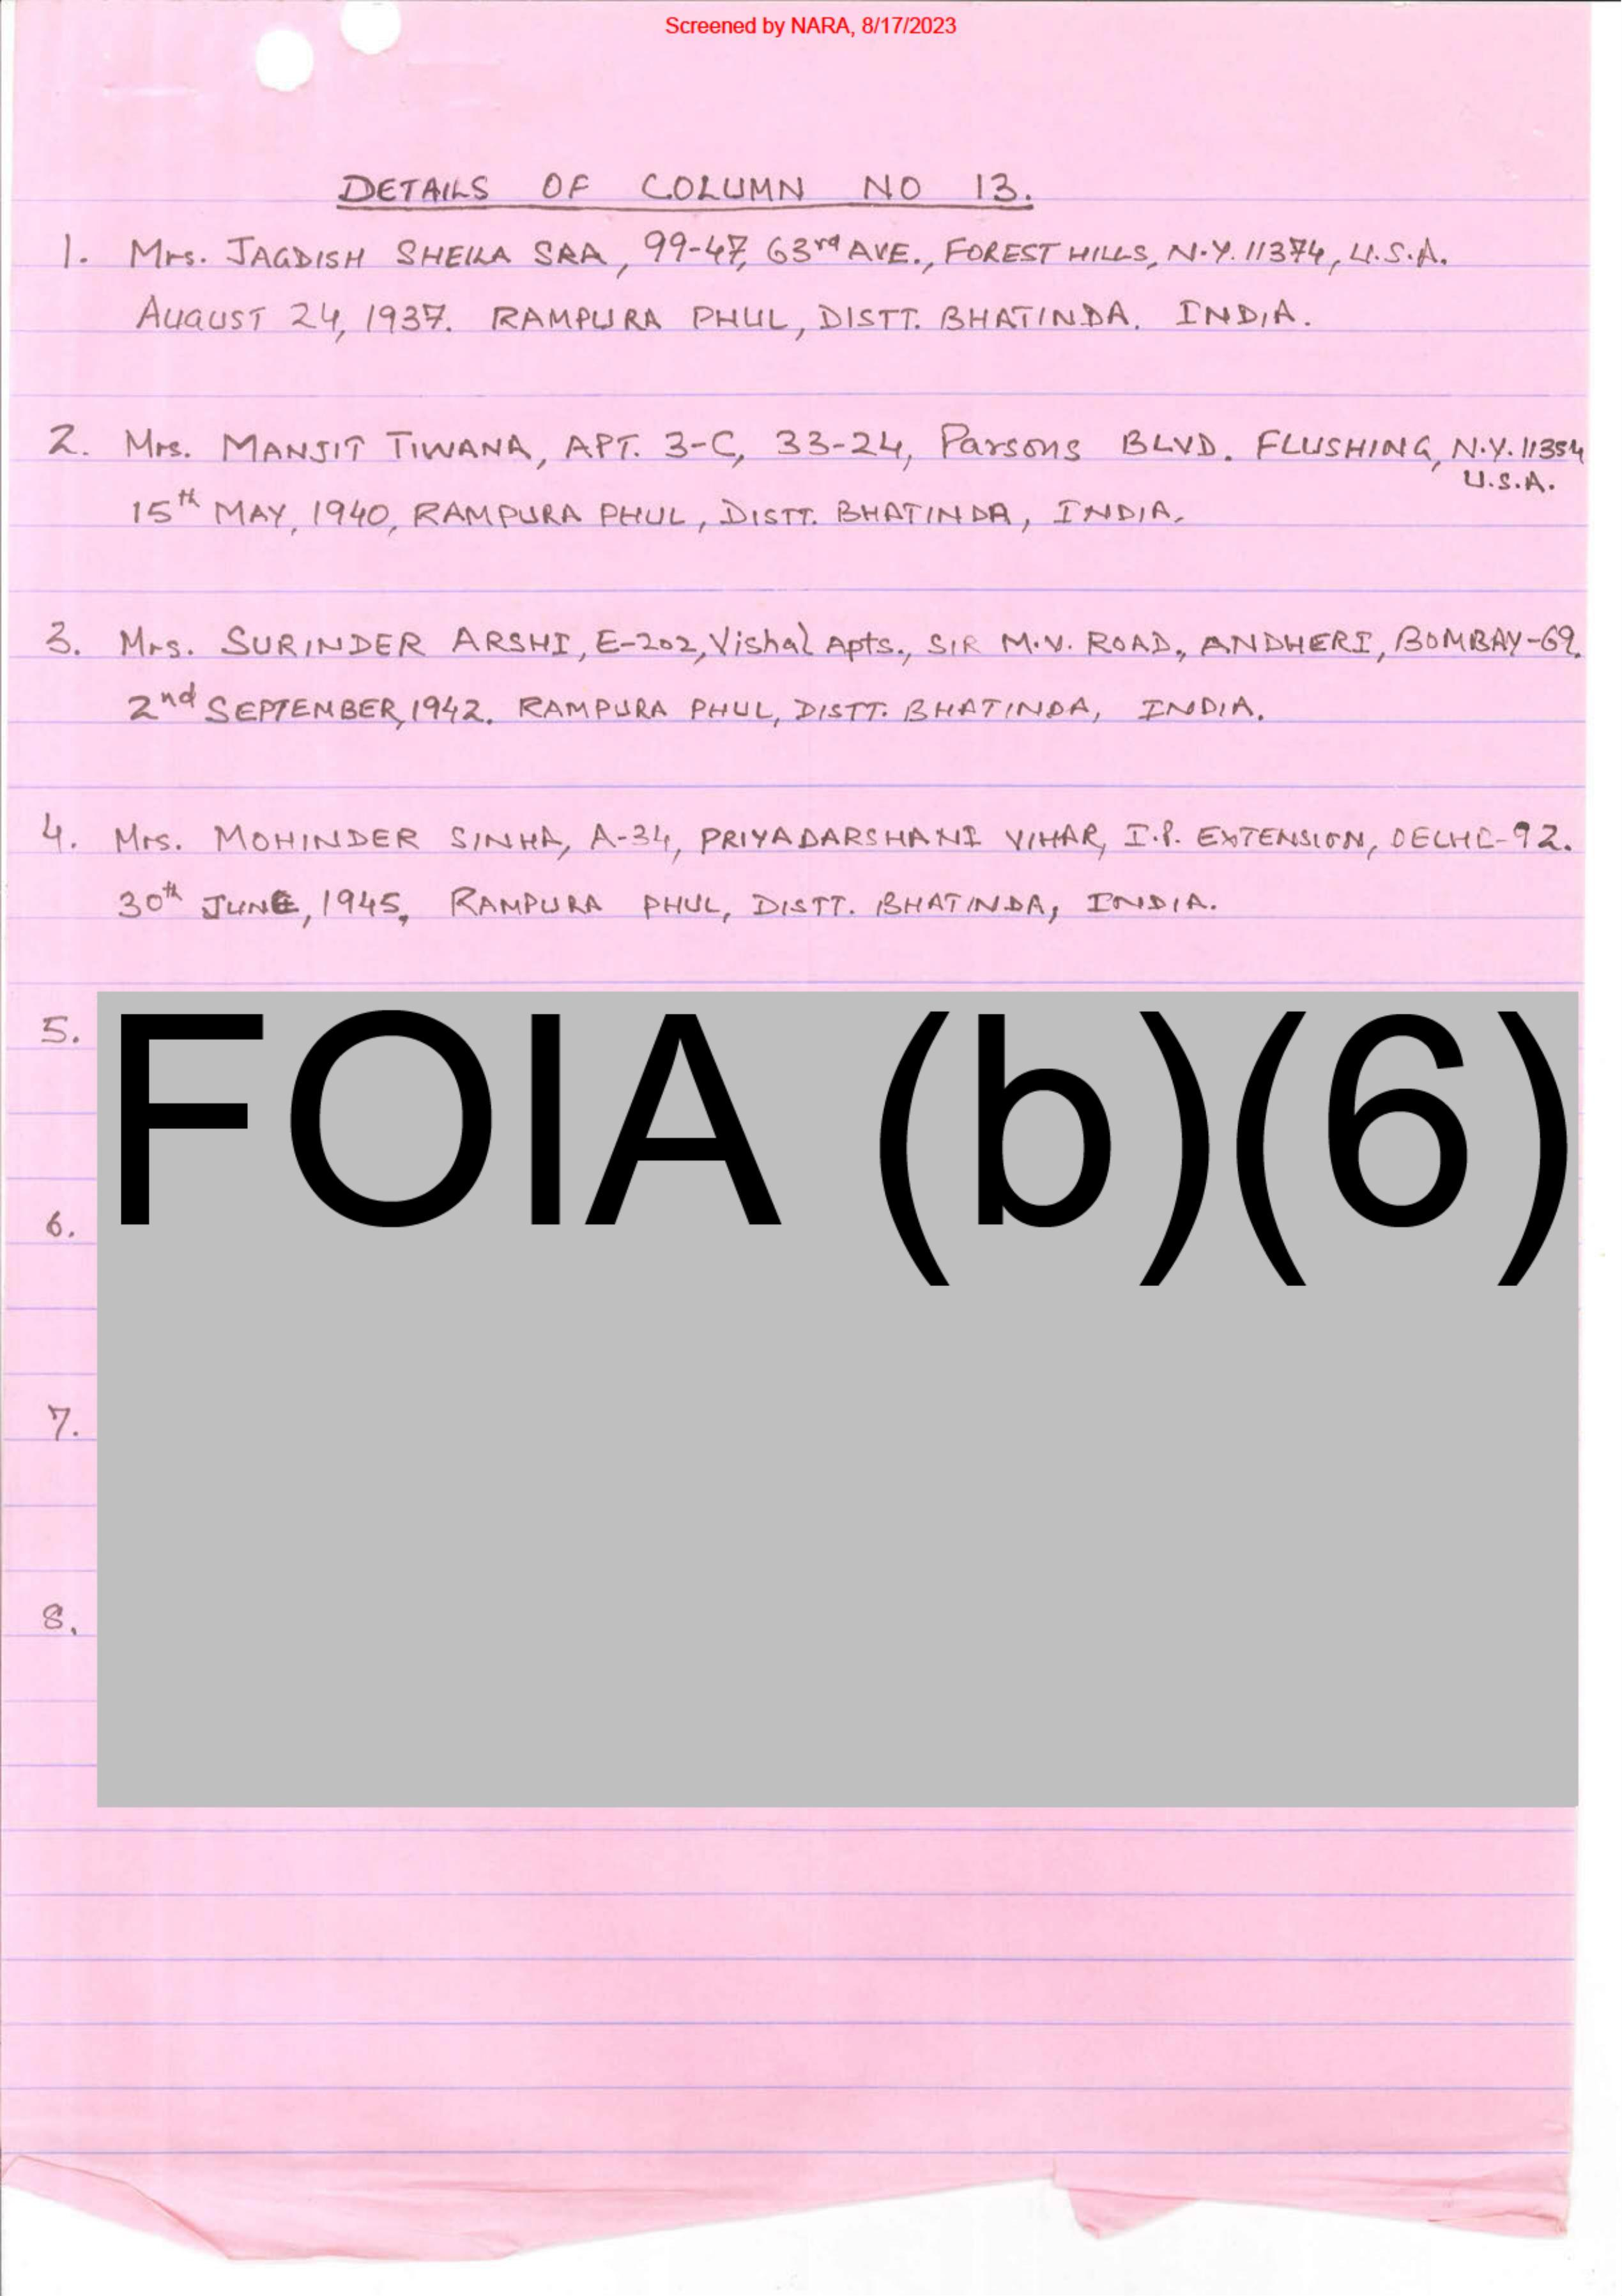 Screened by NARA, 8/17/2023
DETAILS OF COLUMN NO 13.
1. Mrs. JAGDISH SHEILA SRA, 99-47, 63rd AVE., FOREST HILLS, N.Y. 11374, U.S.A.
AUGUST 24, 1937. RAMPURA PHUL, DISTT. BHATINDA. INDIA.
2. Mrs. MANJIT TIWANA, APT. 3-C, 33-24, Parsons BLVD. FLUSHING, N.Y. 11354
U.S.A.
15th MAY, 1940, RAMPURA PHUL, DISTT. BHATINDA, INDIA.
3. Mrs. SURINDER ARSHI, E-202, Vishal Apts., SIR M.V. ROAD, ANDHERI, BOMBAY-69.
2nd SEPTEMBER, 1942. RAMPURA PHUL, DISTT. BHATINDA, INDIA.
4. Mrs. MOHINDER SINHA, A-34, PRIYADARSHANI VIHAR, I.P. EXTENSION, DELHI-92.
30th JUNE, 1945, RAMPURA PHUL, DISTT. BHATINDA, INDIA.
5.
FOIA (b)(6)
6.
7.
8.